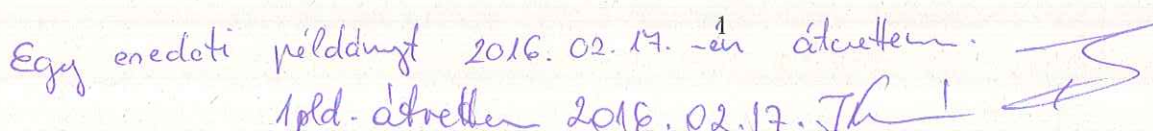 Egy eredeti példányt 2016.02.17.-én átvettem.
1
1 pld. átvettem 2016.02.17.